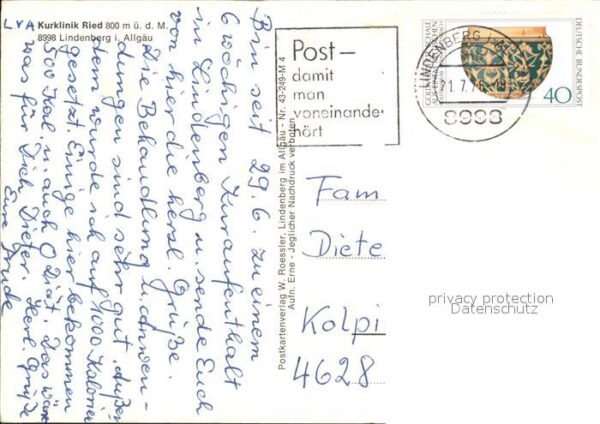 LVA
Kurklinik Ried 800 m ü. d. M.
8998 Lindenberg i. Allgäu
Bin seit 29.6. zu einem
6 wöchigen Kuraufenthalt
in Lindenberg u. sende Euch
von hier die herzl. Grüße.
Die Behandlung u. Anwen-
dungen sind sehr gut. Außer
dem wurde ich auf 1000 Kalorien
gesetzt. Einige hier bekommen
500 Kal u. auch 0 Diät. Das wär
was für Dich Dieter. Herl. Grüße
Eure
Postkartenverlag W. Roessler, Lindenberg im Allgäu - Nr. 43-249-M 4
Aufn. Erne - Jeglicher Nachdruck verboten
Post-
damit
man
voneinander
hört
LINDENBERG
21.7.7
8998
DEUTSCHE BUNDESPOST
40
Fam
Diete
Kolpi
4628
privacy protection
Datenschutz